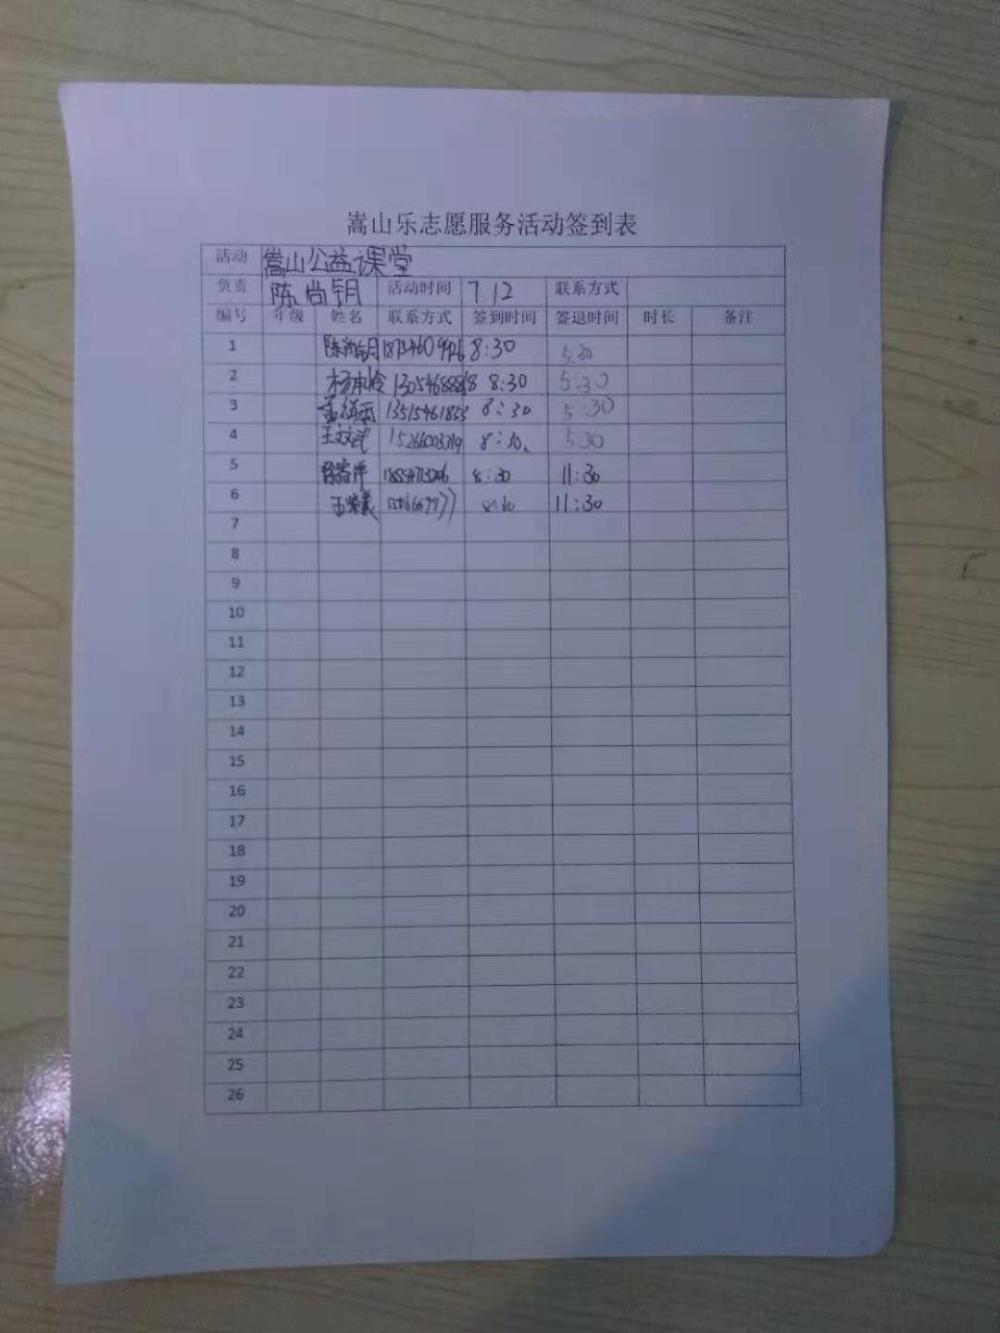 嵩山乐志愿服务活动签到表
活动 嵩山公益课堂
负责 陈尚钥 活动时间 7 12 联系方式
编号 年级 姓名 联系方式 签到时间 签退时间 时长 备注
1 陈尚钥 8:30 5:30
2 8:30 5:30
3 13515461853 8:30 5:30
4 15266003319 8:30 5:30
5 8:30 11:30
6 11:30
7
8
9
10
11
12
13
14
15
16
17
18
19
20
21
22
23
24
25
26